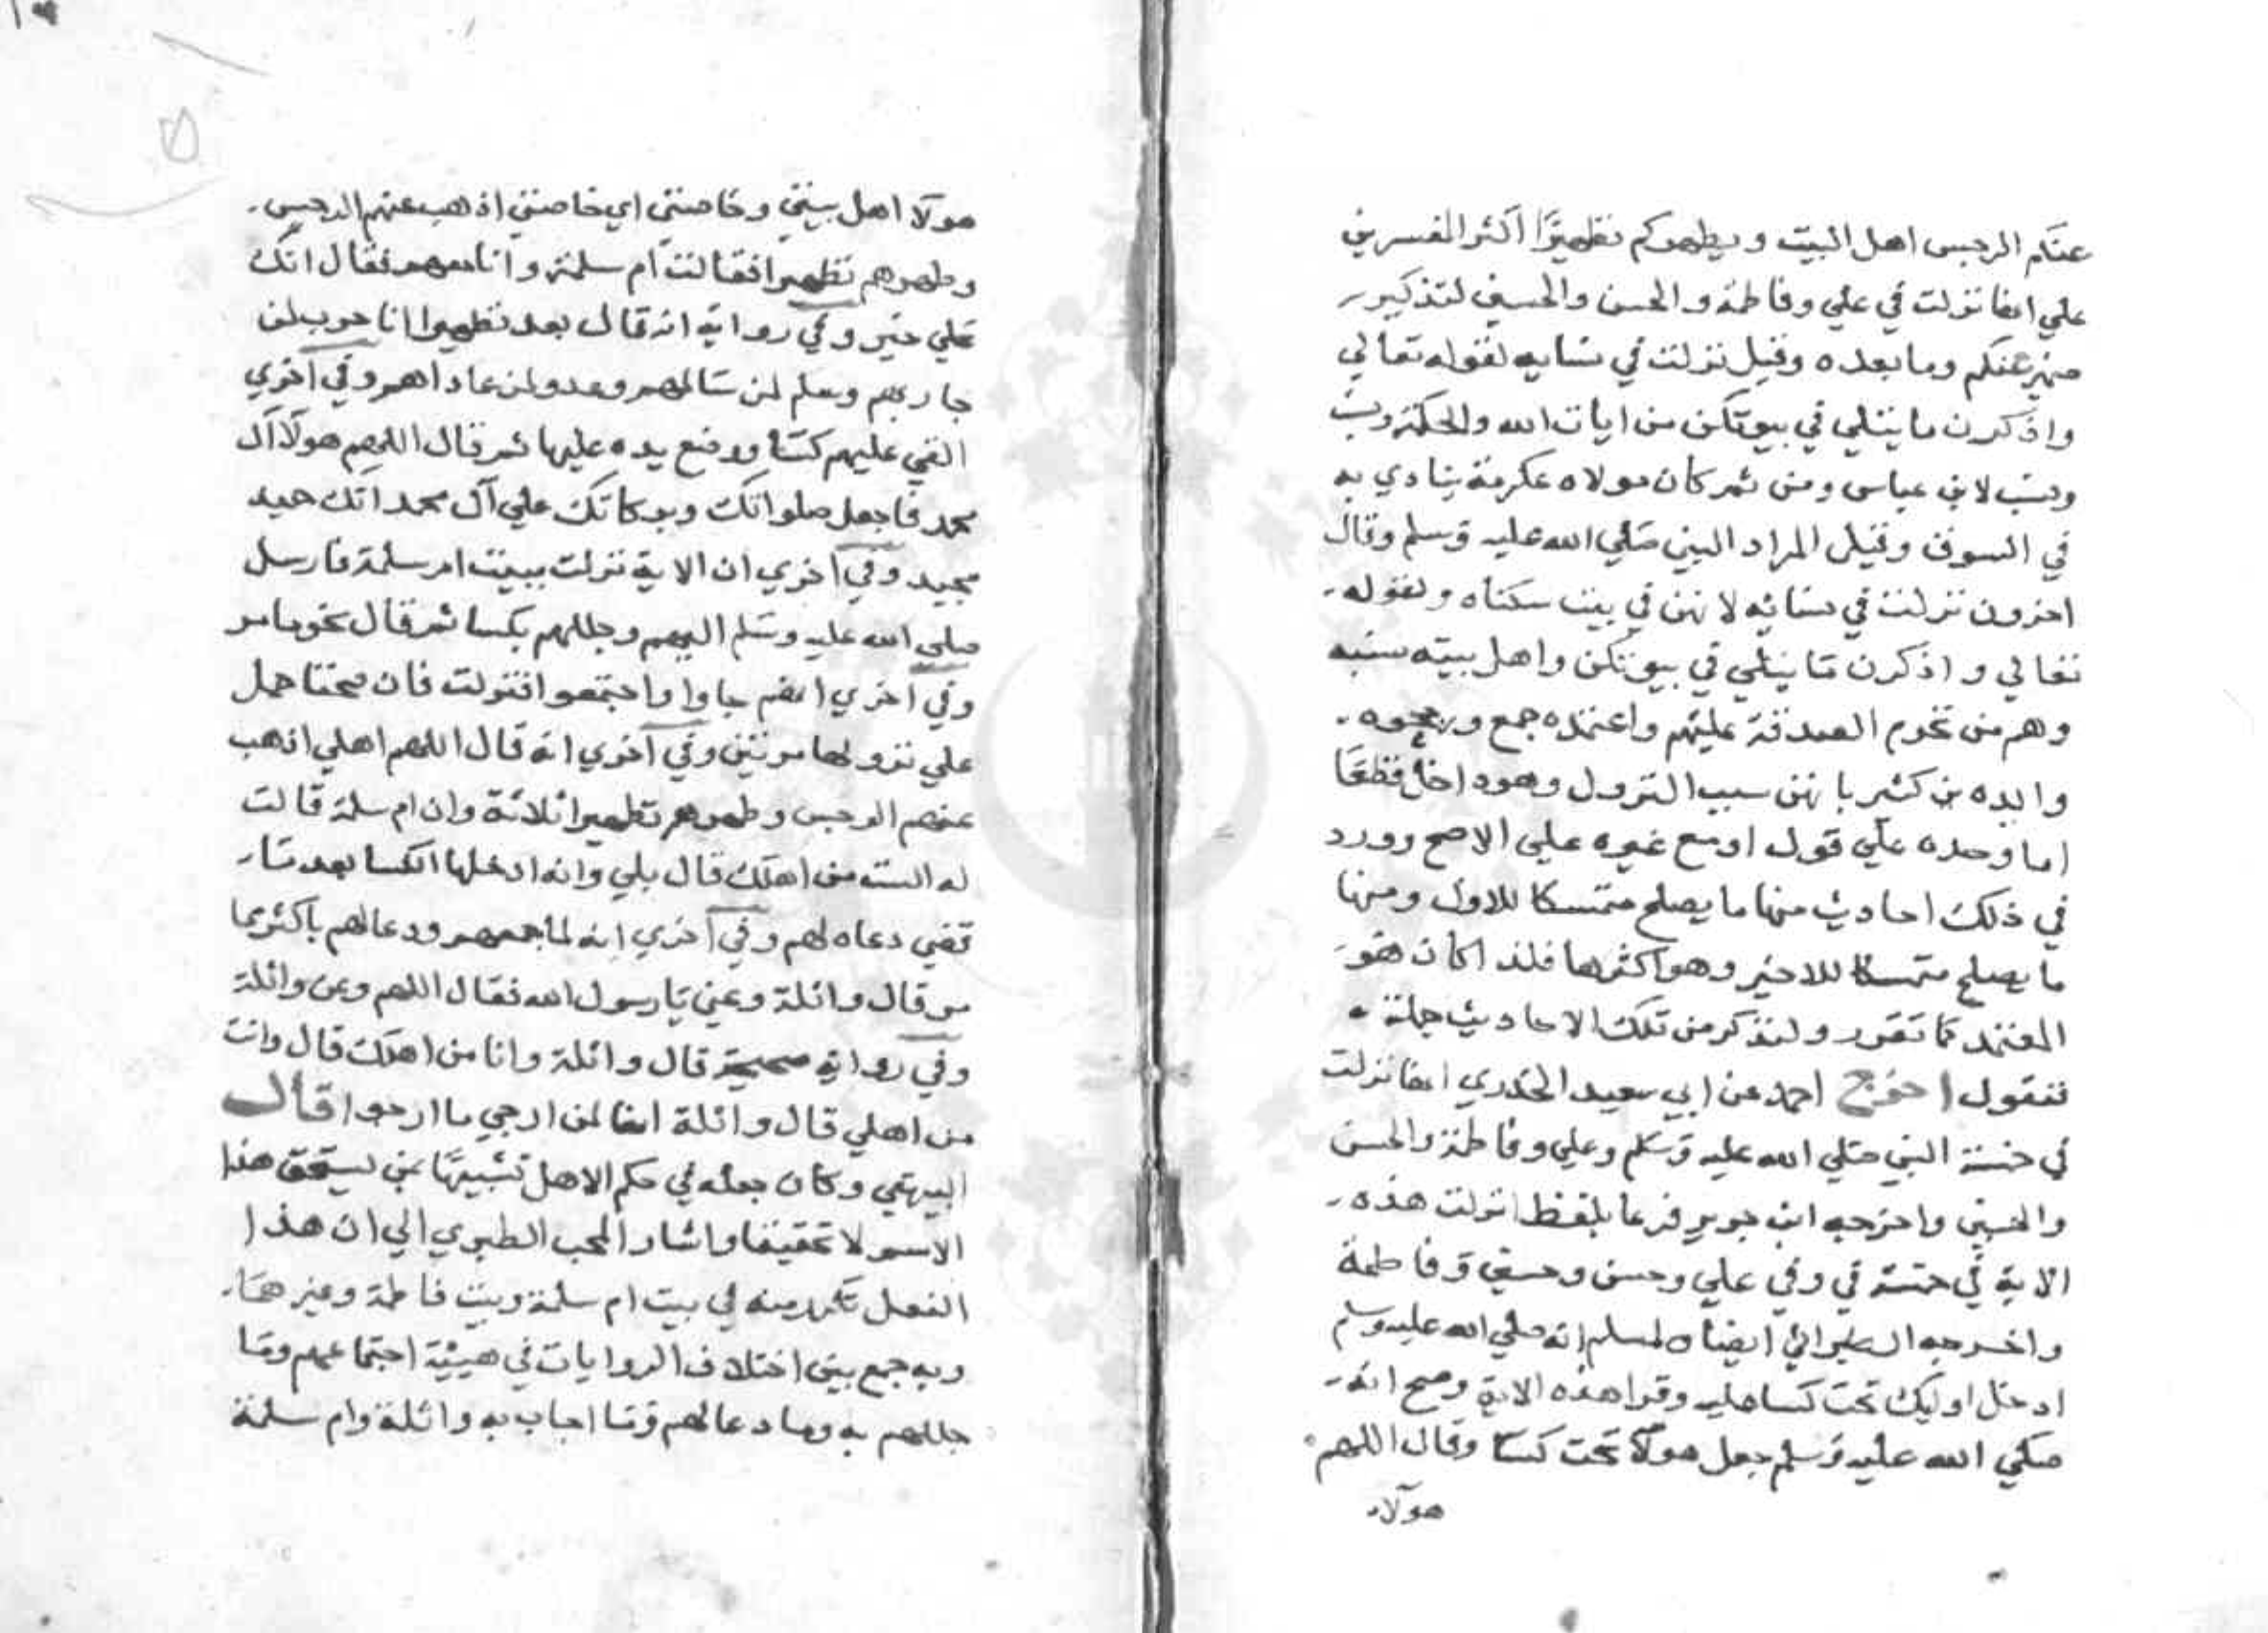 عنكم الرجس اهل البيت ويطهركم تطهيرا اكثر المفسرين
علي انها نزلت في علي وفاطمة والحسن والحسين لتذكير
ضمير عنكم وما بعده وقيل نزلت في نسايه لقوله تعالي
واذكرن ما يتلي في بيوتكن من ايات الله والحكمة ونسب
ونسب لابن عباس ومن ثمر كان مولاه عكرمة ينادي به
في السوق وقيل المراد النبي صلي الله عليه وسلم وقال
اخرون نزلت في نسائه لانهن في بيت سكناه ولقوله
تعالي واذكرن ما يتلي في بيوتكن واهل بيته نسبه
وهم من تحرم الصدقة عليهم واعتمده جمع ورجحوه
وايده بن كثير بانهن سبب النزول وهو داخل قطعا
اما وحده علي قول او مع غيره علي الاصح وورد
في ذلك احاديث منها ما يصلح متمسكا للاول ومنها
ما يصلح متمسكا للاخير وهو اكثرها فلذا كان هو
المعتمد كما تقرر ولنذكر من تلك الاحاديث جملة
فنقول اخرج احمد عن ابي سعيد الخدري انها نزلت
في خمسة النبي صلي الله عليه وسلم وعلي وفاطمة والحسن
والحسين واخرجه ابن جرير مرفوعا بلفظ انزلت هذه
الاية في خمسة في وفي علي وحسن وحسين وفاطمة
واخرجه الطبراني ايضا ولمسلم انه صلي الله عليه وسلم
ادخل اوليك تحت كسا عليه وقرا هذه الاية وصح انه
صلي الله عليه وسلم جعل هولآ تحت كسا وقال اللهم
هولآء
هولآ اهل بيتي وخاصتي اي خاصتي اذهب عنهم الرجس
وطهرهم تطهيرا فقالت ام سلمة وانا معهم فقال انك
علي خير وفي رواية انه قال بعد تطهيرا انا حرب لمن
حاربهم وسلم لمن سالمهم وعدو لمن عاداهم وفي اخري
القي عليهم كسا ووضع يده عليها ثم قال اللهم هولآ آل
محمد فاجعل صلواتك وبركاتك علي آل محمد انك حميد
مجيد وفي اخري ان الاية نزلت ببيت ام سلمة فارسل
صلي الله عليه وسلم اليهم وجللهم بكسا ثم قال نحو ما مر
وفي اخري انهم جاوا واجتمعوا فنزلت فان صحتا حمل
علي نزولها مرتين وفي اخري انه قال اللهم اهلي اذهب
عنهم الرجس وطهرهم تطهيرا ثلاثة وان ام سلمة قالت
له الست من اهلك قال بلي وانه ادخلها الكسا بعد ما
قضي دعاه لهم وفي اخري انه لما جمعهم ودعا لهم باكثر مما
مر قال واثلة وعني يا رسول الله فقال اللهم وعن واثلة
وفي رواية صحيحة قال واثلة وانا من اهلك قال وانت
من اهلي قال واثلة انها لمن ارجي ما ارجوا قال
البيهقي وكان جعله في حكم الاهل تشبيها بمن يستحق هذا
الاسم لا تحقيقا واشار المحب الطبري الي ان هذا
الفعل تكرر منه في بيت ام سلمة وبيت فاطمة وغيرهما
وبه جمع بين اختلاف الروايات في هيئة اجتماعهم وما
جللهم به وما دعا لهم وما اجاب به واثلة وام سلمة